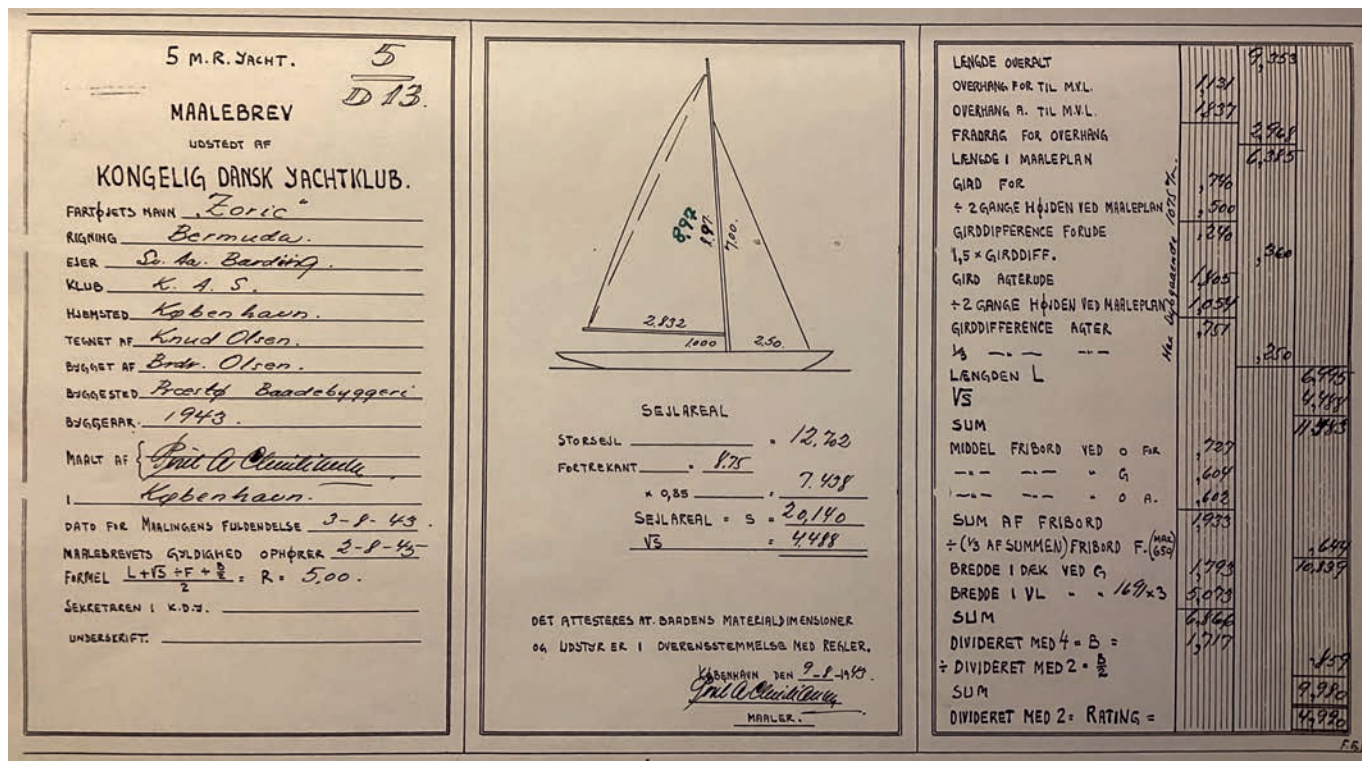 5 M.R. YACHT.
5
D 13.
MAALEBREV
UDSTEDT AF
KONGELIG DANSK YACHTKLUB.
FARTØJETS NAVN „Zoric“
RIGNING Bermuda.
EJER Sv. Aa. Barding.
KLUB K. A. S.
HJEMSTED København.
TEGNET AF Knud Olsen.
BYGGET AF Brdr. Olsen.
BYGGESTED Præstø Baadebyggeri
BYGGEAAR. 1943.
MAALT AF {
I København.
DATO FOR MAALINGENS FULDENDELSE 3-8-43.
MAALEBREVETS GYLDIGHED OPHØRER 2-8-45
FORMEL L+√S÷F+B/2 / 2 = R = 5,00.
SEKRETÆREN I K.D.Y.
UNDERSKRIFT.
8,97
8,97.
7.00.
2.832
1.000
2.50.
SEJLAREAL
STORSEJL = 12,702
FORTREKANT = 8.75
× 0,85 = 7.438
SEJLAREAL = S = 20,140
√S = 4.488
DET ATTESTERES AT. BAADENS MATERIALDIMENSIONER
OG UDSTYR ER I OVERENSSTEMMELSE MED REGLER.
KØBENHAVN DEN 9-8-1943.
MAALER.
LENGDE OVERALT 9,353
OVERHANG FOR TIL M.V.L. 1,131
OVERHANG A. TIL M.V.L. 1,837
FRADRAG FOR OVERHANG 2,968
LÆNGDE I MAALEPLAN 6,385
GIRD FOR ,740
÷ 2 GANGE HØJDEN VED MAALEPLAN ,500
GIRDDIFFERENCE FORUDE ,240
1,5 × GIRDDIFF. ,360
GIRD AGTERUDE 1,805
÷ 2 GANGE HØJDEN VED MAALEPLAN 1,054
GIRDDIFFERENCE AGTER ,751
1/3 —"— —"— ,250
LÆNGDEN L 6,995
√S 4,488
SUM 11,483
MIDDEL FRIBORD VED O FOR ,727
—"— —"— " G ,604
—"— —"— " O A. ,602
SUM AF FRIBORD 1,933
÷ (1/3 AF SUMMEN) FRIBORD F. (MAX 650) ,644
BREDDE I DÆK VED G 1,793 10,839
BREDDE I VL " " 1691×3 5,073
SUM 6,866
DIVIDERET MED 4 = B = 1,717
÷ DIVIDERET MED 2 = B/2 ,859
SUM 9,980
DIVIDERET MED 2 = RATING = 4,990
Max Dybgaaende 1075